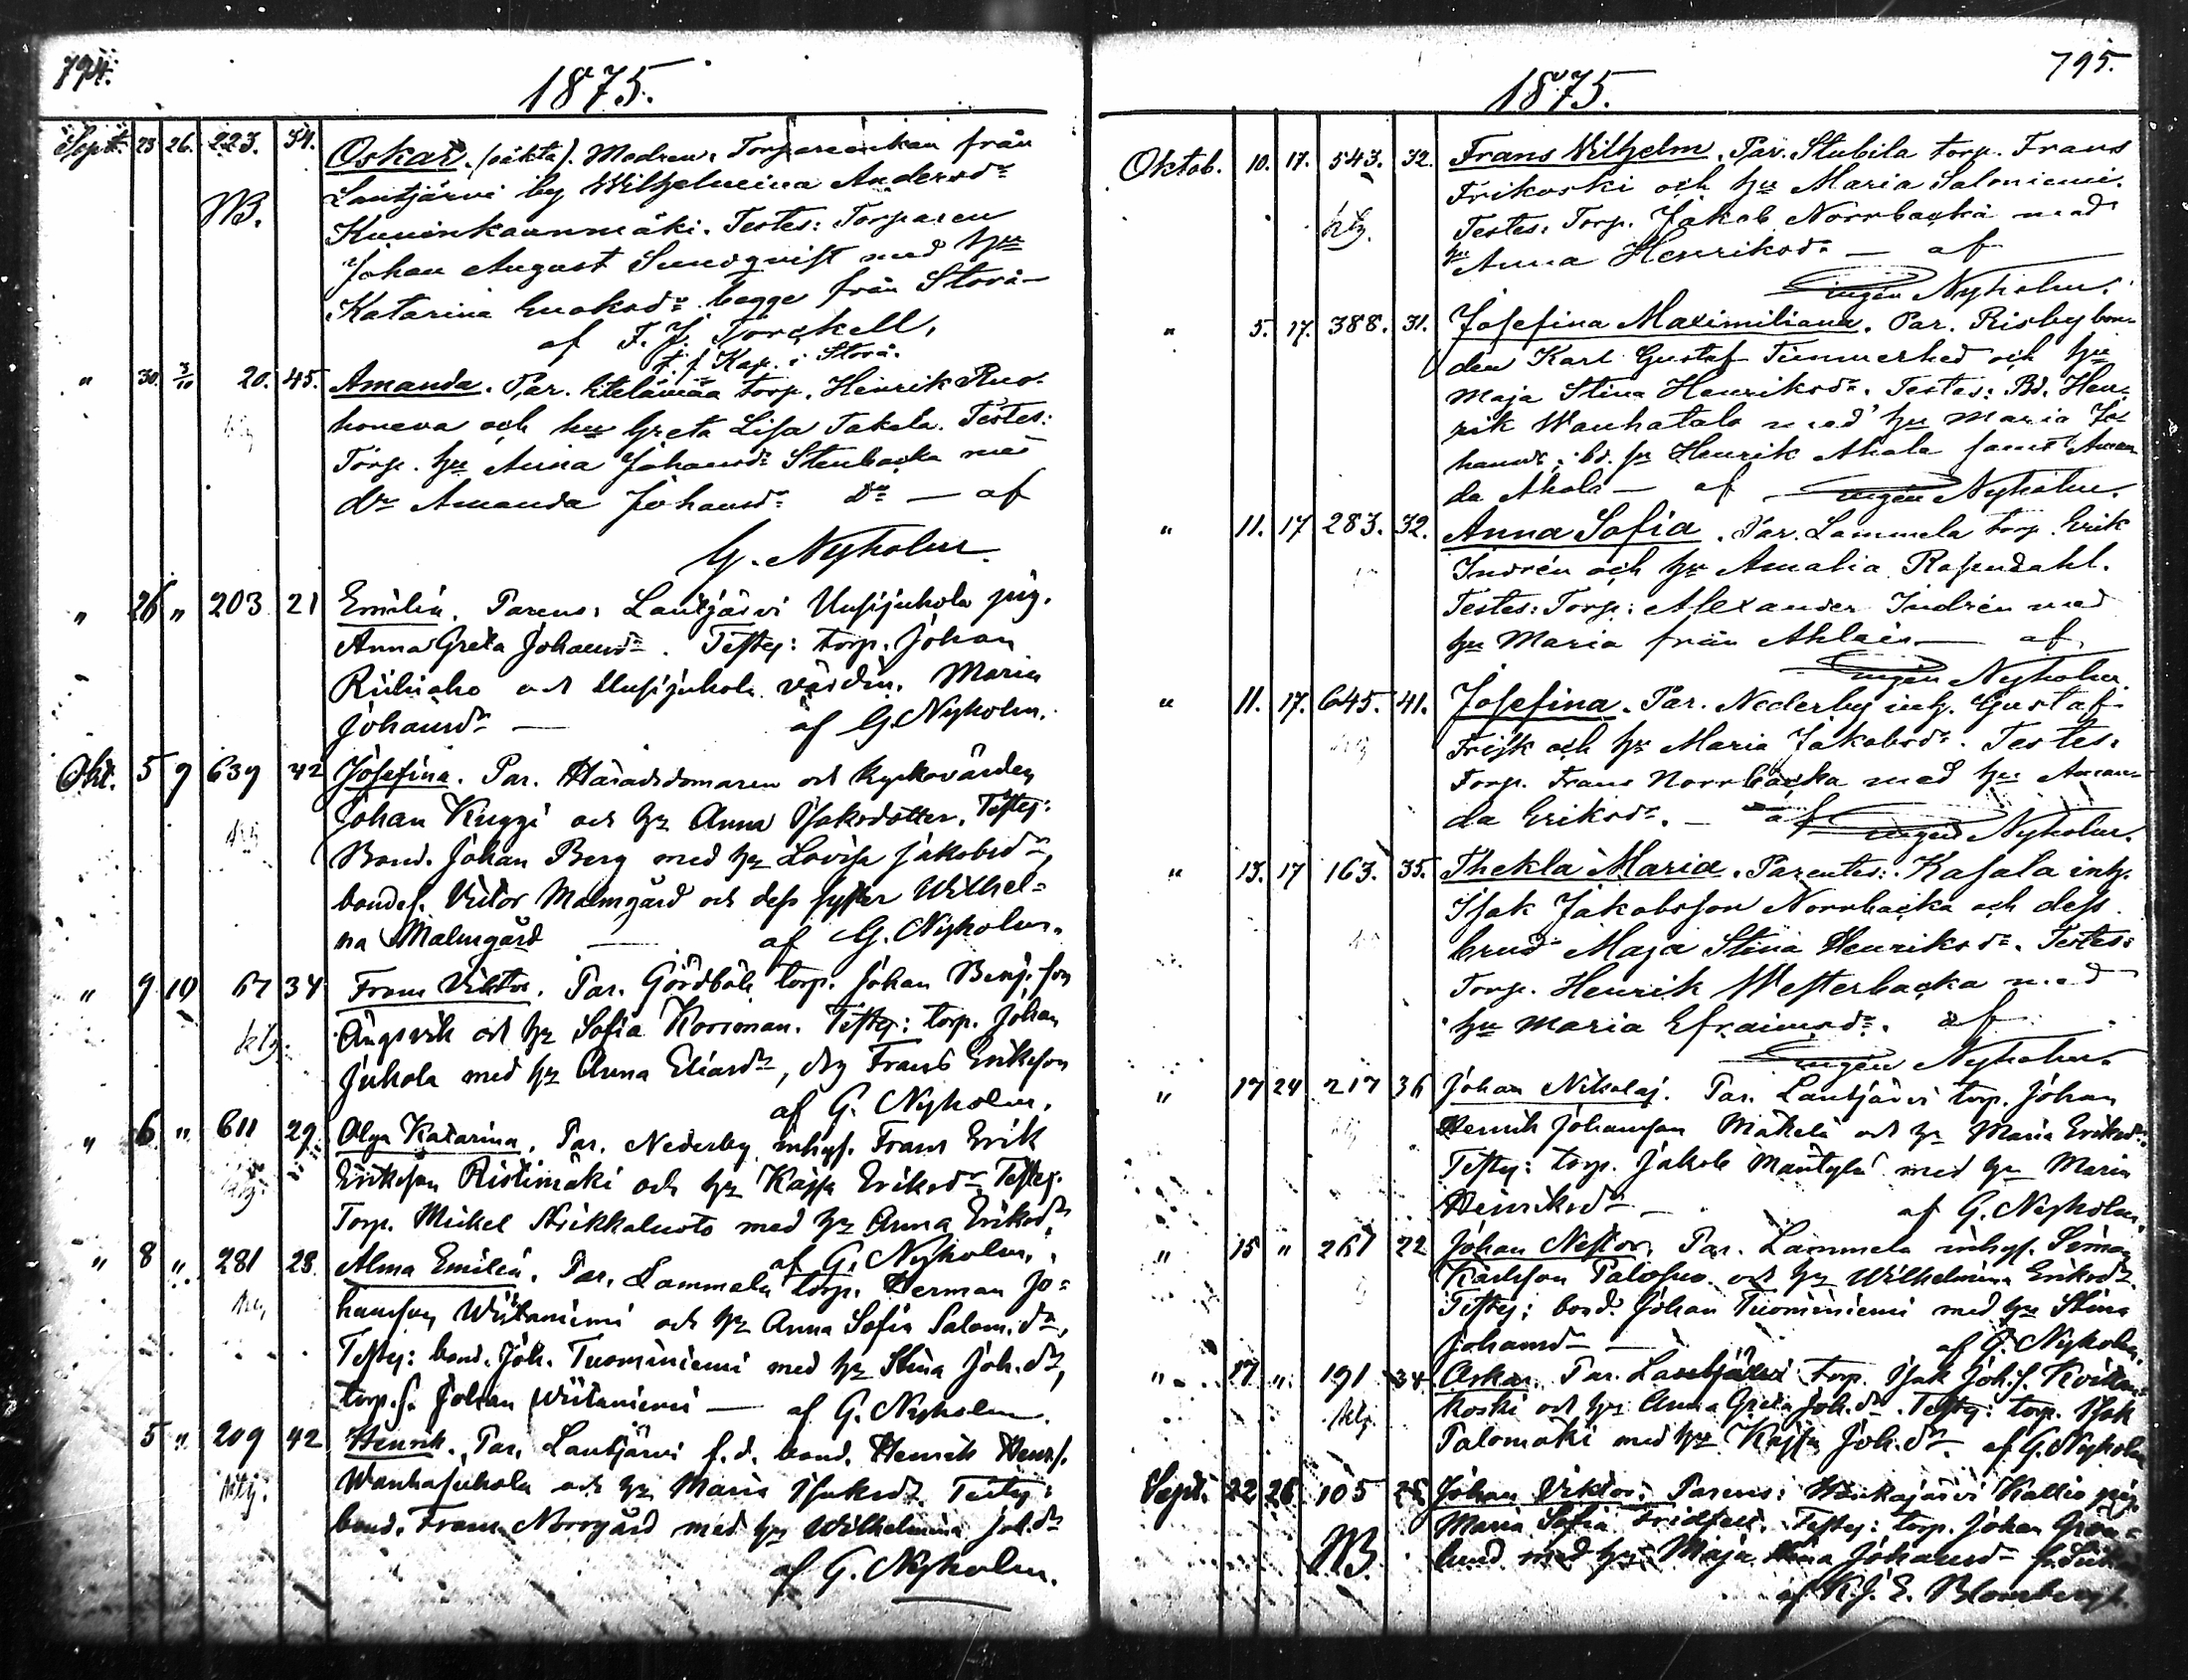 794.
1875.
Sept. 23 26. 223. 34. Oskar. (oäkta). Modren: Torpareenkan från
Lautjärvi by Wilhelmina Andersdr
NB. Kuninkaanmäki. Testes: Torparen
Johan August Sundqvist med hu
Katarina Enoksdr begge från Storå—
af F. J. Törckell,
t. f. Kap. i Storå.
" 30. 3/10 20. 45. Amanda. Par. torp. Henrik Ruo-
honeva och hu Greta Lisa Takala. Testes:
Torp. hu Anna Johansdr Stenbacka
dr Amanda Johansdr dr — af
G. Nyholm
" 26 " 203 21 Emilia. Parens: Lautjärvi Uusijuhola pig.
Anna Greta Johansdr. Testes: torp. Johan
Riihiaho och Uusijuhola värdin. Maria
Johansdr — af G. Nyholm.
Okt. 5 9 639 42 Josefina. Par. Häradsdomaren och kyrkovärden
Johan Knggi och hu Anna Isaksdotter. Testes:
Bond. Johan Berg med hu Lovisa Jakobsdr,
bondes. Victor Malmgård och dess syster Wilhel=
na Malmgård — af G. Nyholm.
" 9 10 67 34 Frans Viktor. Par. Gördböle torp. Johan Benj. son
klg. Ängsvik och hu Sofia Korsman. Testes: torp. Johan
Juhola med hu Anna Eliasdr, dg Frans Eriksson
af G. Nyholm.
" 6 " 611 29. Olga Katarina. Par. Nederby inhys. Frans Erik
Eriksson Ristimäki och hu Kajsa Eriksdr. Testes.
Torp. Mickel med hu Anna Eriksdr.
af G. Nyholm.
" 8 " 281 28 Alma Emilia. Par. Lammela torp. Herman Jo=
hansson Wiitaniemi och hu Anna Sofia Salom.dr,
Testes: bond. Joh. Tuominiemi med hu Stina Joh.dr,
torp.s. Johan Wiitaniemi — af G. Nyholm.
5 " 209 42 Henrik. Par. Lautjärvi f.d. bond. Henrik Henr.s.
klg. Wanhajuhola och hu Maria Isaksdr. Testes:
bond. Frans Norrgård med hu Wilhelmina Joh.dr
af G. Nyholm.
795.
1875.
Oktob. 10. 17. 543. 32. Frans Vilhelm. Par. Stubila torp. Frans
Frikoski och hu Maria Saloniemi.
klg. Testes: Torp. Jakob Norrbacka med
hu Anna Henriksdr — af
ingen Nyholm.
" 5. 17. 388. 31. Josefina Maximiliana. Par. Risby bon-
den Karl Gustaf Timmerhed och hu
Maja Stina Henriksdr. Testes: Bd. Hen-
rik Wanhatalo med hu Maria Jo-
hansdr; bd. sn Henrik Ahala samt Aman
da Ahala — af ingen Nyholm.
" 11. 17 283. 32. Anna Sofia. Par. Lammela torp. Erik
Indrén och hu Amalia Rosendahl.
Testes: Torp: Alexander Indrén med
hu Maria från Ahlais — af
ingen Nyholm
" 11. 17. 645. 41. Josefina. Par. Nederby inh. Gustaf
Frisk och hu Maria Jakobsdr. Testes:
Torp. Frans Norrbacka med hu Aman-
da Eriksdr. — af ingen Nyholm.
" 13. 17 163. 35. Thekla Maria. Parentes: Kasala inh.
Isak Jakobsson Norrbacka och dess
brud Maja Stina Henriksdr. Testes:
Torp. Henrik Westerbacka med
hu Maria Efraimsdr. af
ingen Nyholm
" 17 24 217 36 Johan Nikolaj. Par. Lautjärvi torp. Johan
Henrik Johansson Mäkelä och hu Maria Eriksdr.
Testes: torp. Jakob Mäntylä med hu Maria
Henriksdr — af G. Nyholm.
" 15 " 261 22 Johan Nestor. Par. Lammela inhys. Simon
Karlsson Palosuo och hu Wilhelmina Eriksdr.
Testes: bond. Johan Tuominiemi med hu Stina
Johansdr — af G. Nyholm.
" 17 " 191 34 Oskar. Par. Lautjärvi torp. Isak Joh.s.
klg. koski och hu Anna Greta Joh.dr. Testes: torp. Isak
Palomäki med hu Kajsa Joh.dr. af G. Nyholm
Sept. 22 26 105 25 Johan Viktor. Parens: Honkajärvi Kallio pig.
Maria Sofia Testes: torp. Johan Grön=
NB. lund med hu Maja Johansdr
af K.J.E. Blomberg.